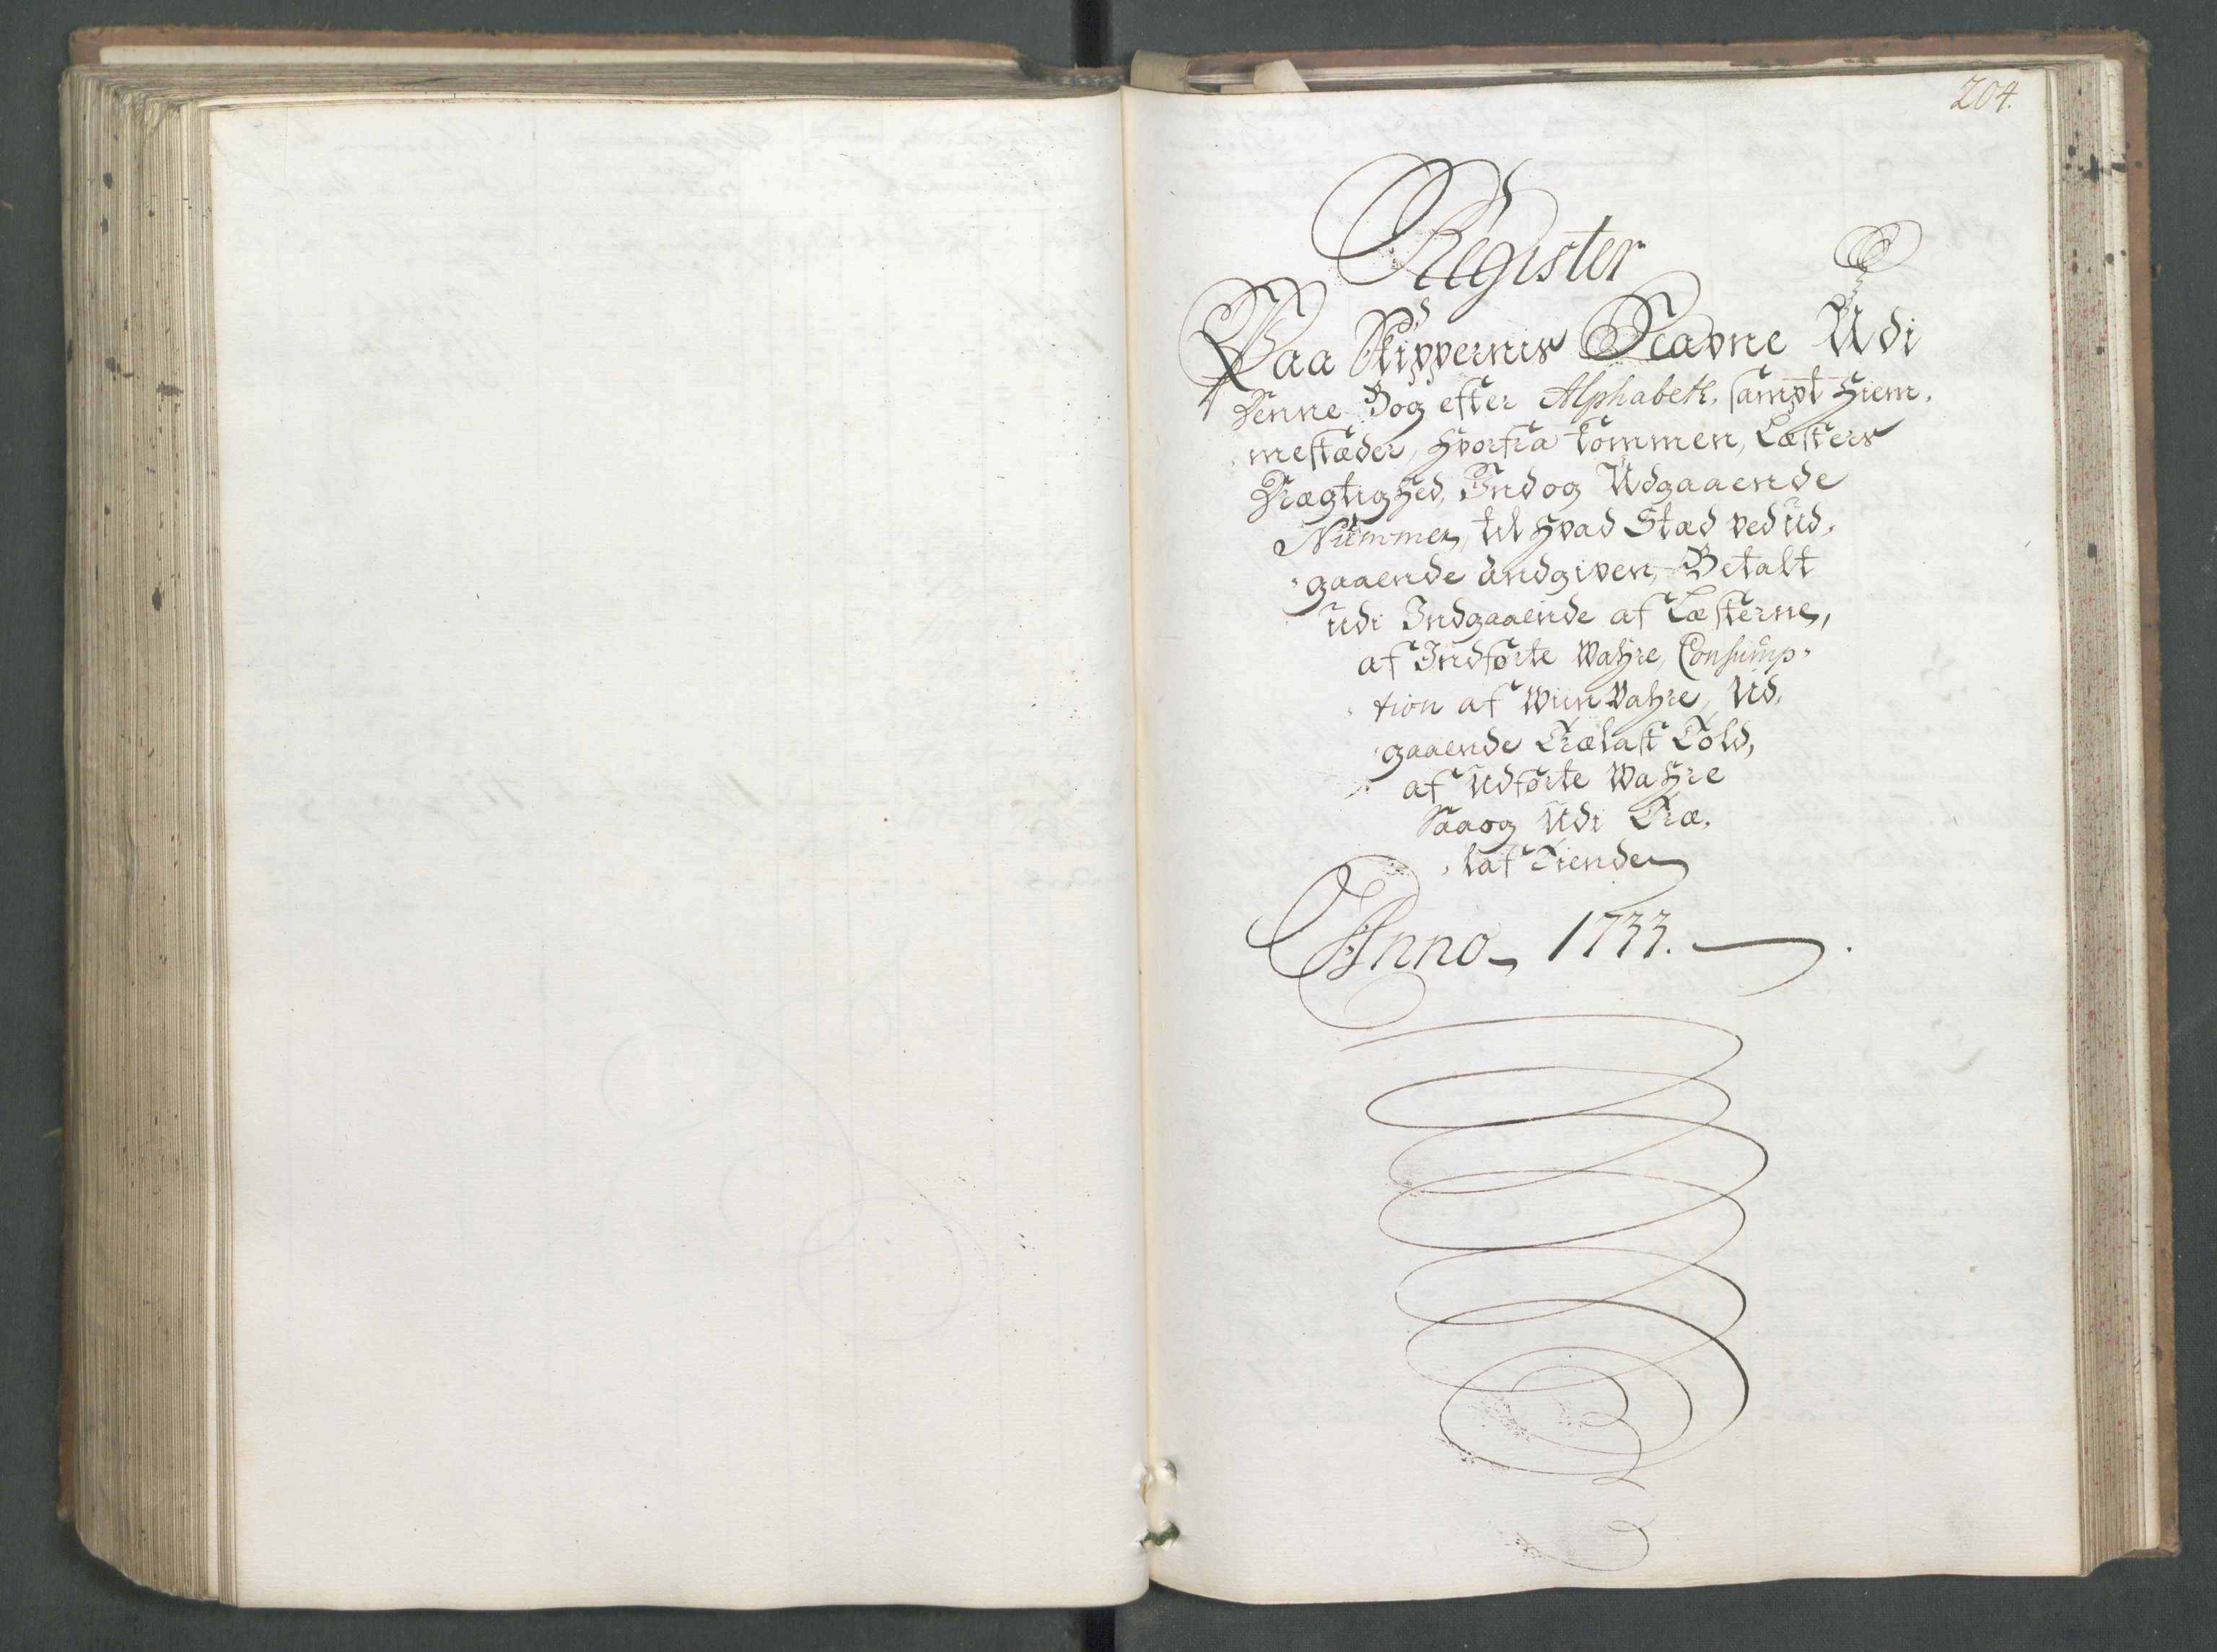 204.
Register
Paa Skippernis Navne Udi
Denne Bog efter Alphabeth, sampt Hiem-
mestæder, Hvorfra kommen, Læsters
Drægtighed, Ind og Udgaaende
Nummer, til Hvad Stæd ved ud-
gaaende andgiven, Betalt
udi Indgaaende af Læsterne,
af Indførte Wahre, Consump-
tion af Wiin Vahre, Ud-
gaaende Trælast Told,
af Udførte Wahre
Saaog Udi Træ-
last Tiende
Anno 1733.